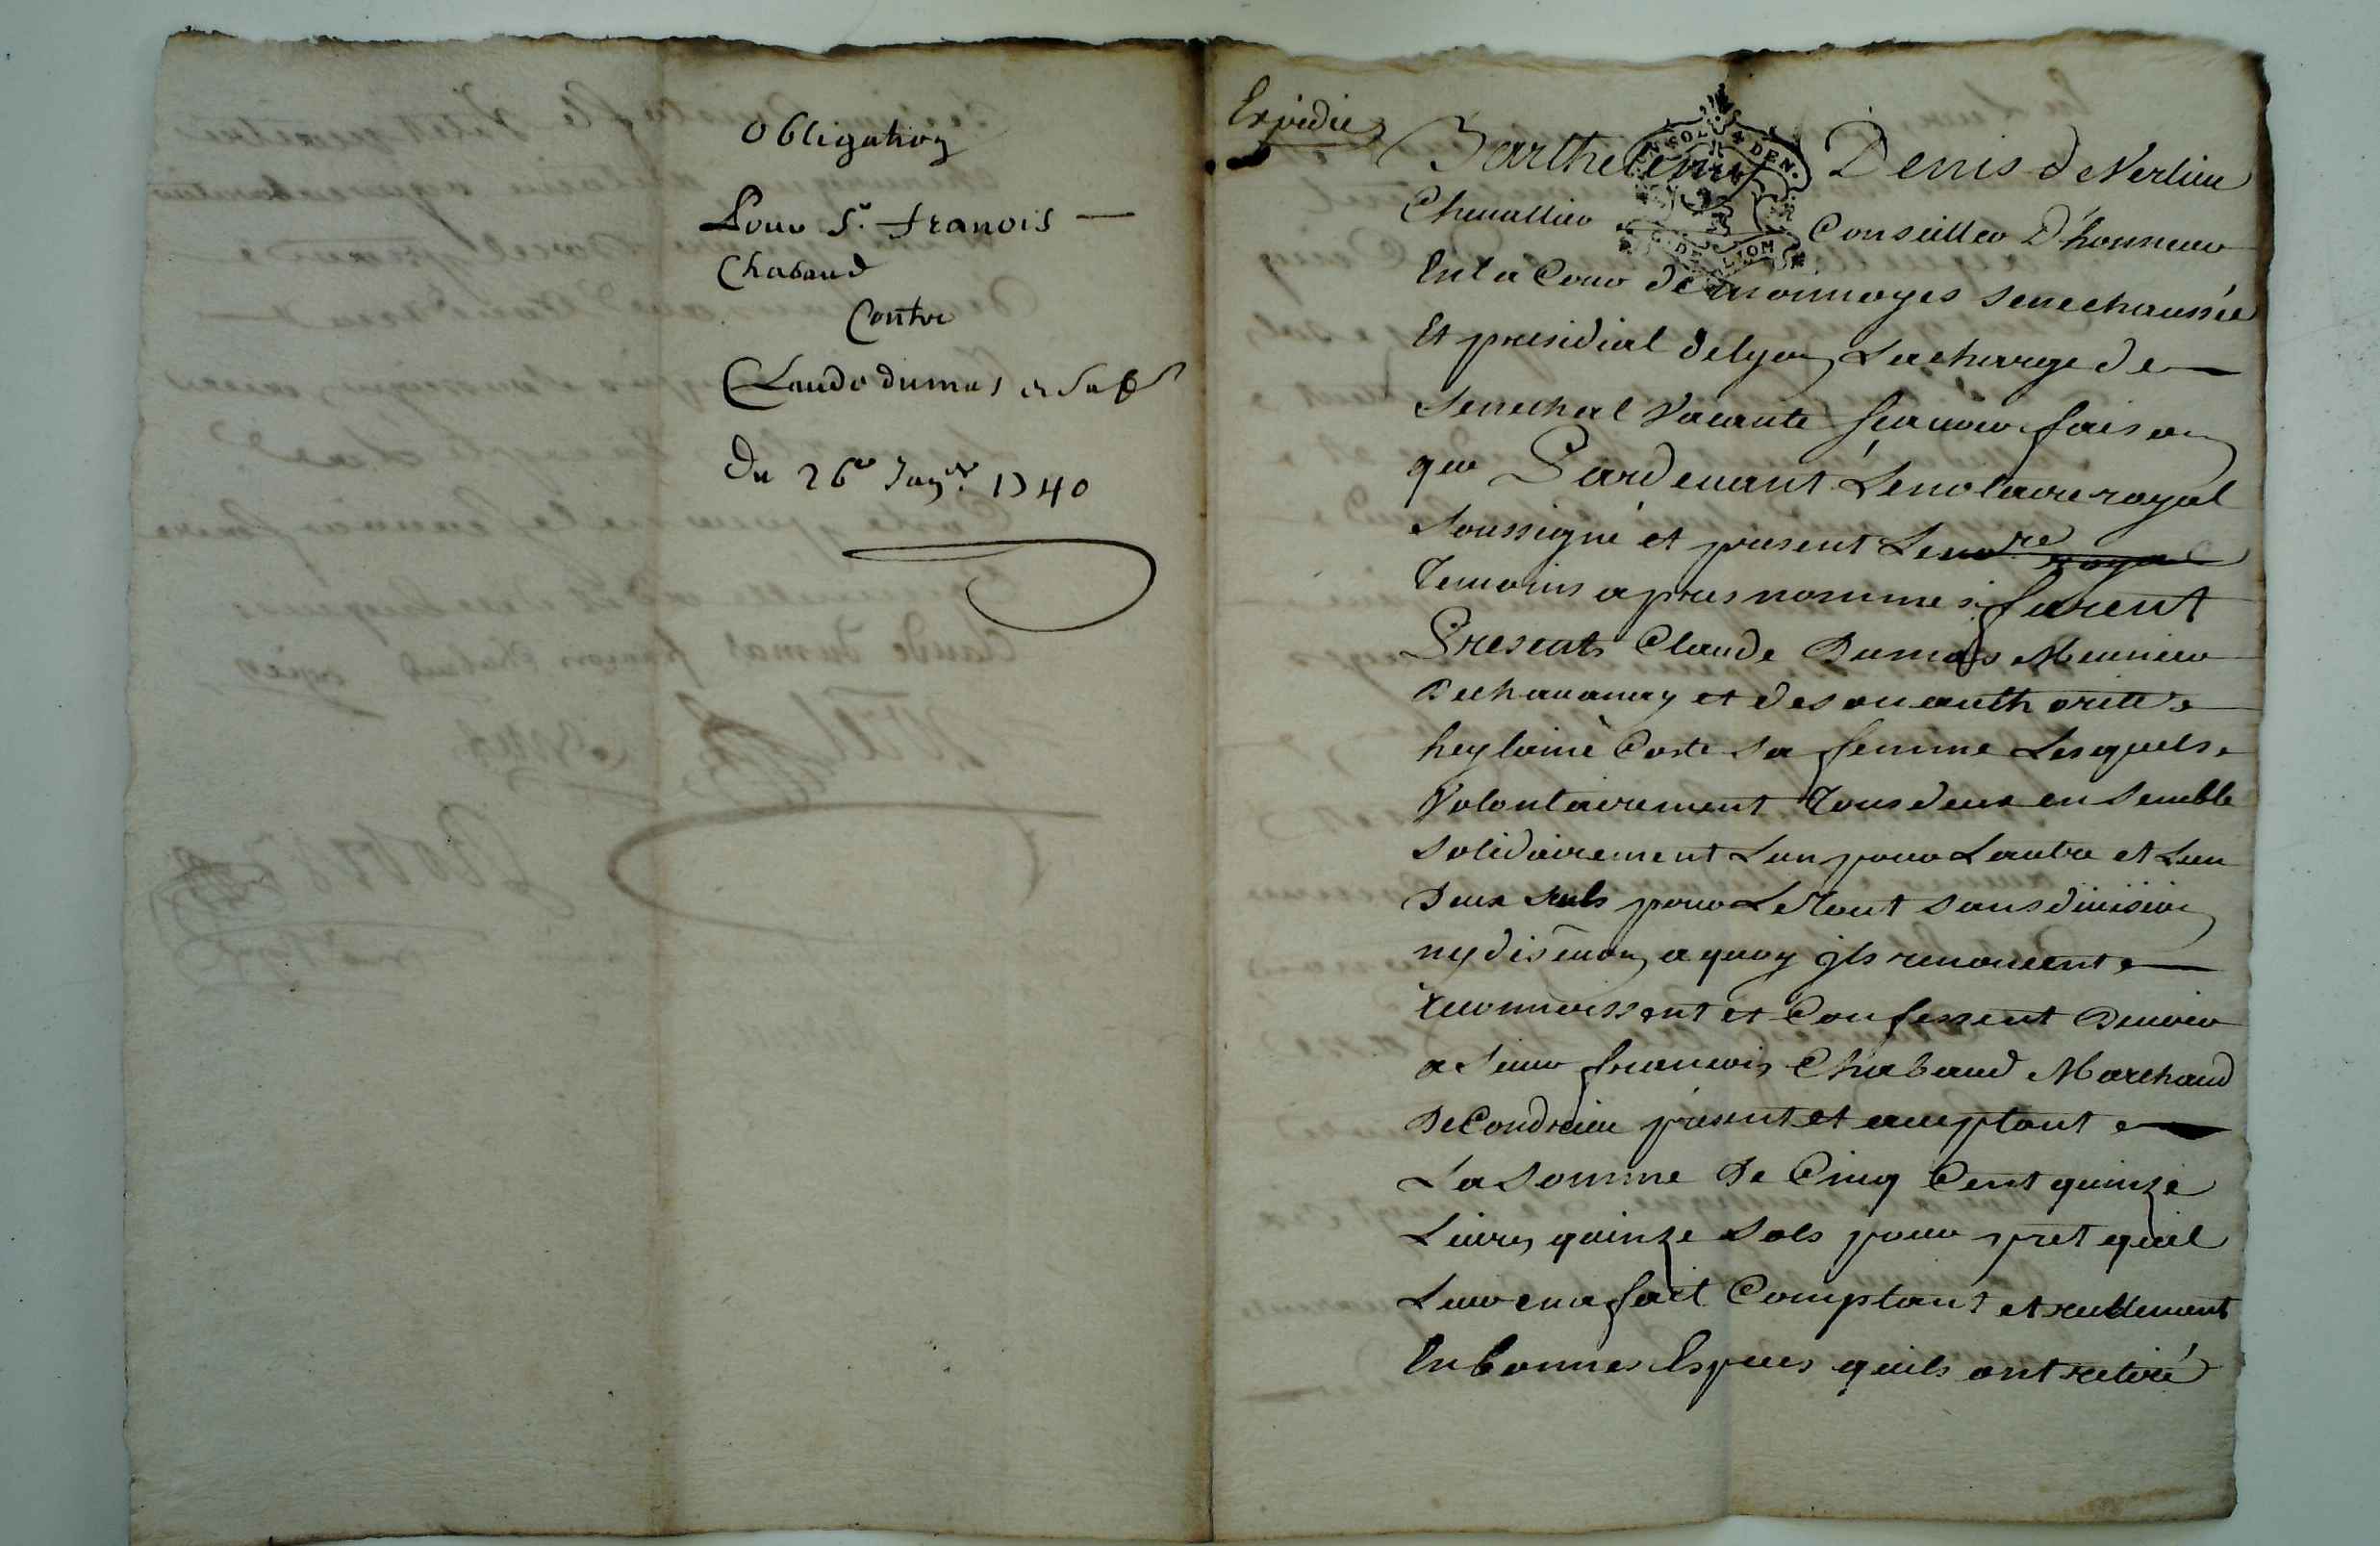 Obligation
Pour Sr. franois
Chaboud
Contre
Claude dumas et sa f
Du 26e Janver. 1740
Expedié
Barthelemy Denis de Verlieu
Chevallier Conseiller D'honneur
En la Cour des monnoyes Senechaussée
Et presidial de lyon La charge de
Senechal Vacante sçavoir faison
que Pardevant Le notaire royal
Soussigné et present
Temoins apres nommes furent
Presents Claude Dumas Meunier
De chavanay et de son authorité
heylaine Coste sa femme Lesquels
Volontairement Tous deux ensemble
Solidairement Lun pour Lautre et Lun
Deux seuls pour Le Tout sans division
ny discution a quoy jls renoncent
reconnoissent et Confessent Devoir
a Sieur francois Chabaud Marchand
De Condrieu present et aceptant
La Somme De Cinq Cent quinze
Livres quinze Sols pour pret quil
Leur en a fait Comptant et reellement
En bonnes Especes quils ont retiré
SOL 4 DEN.
G. DE LION